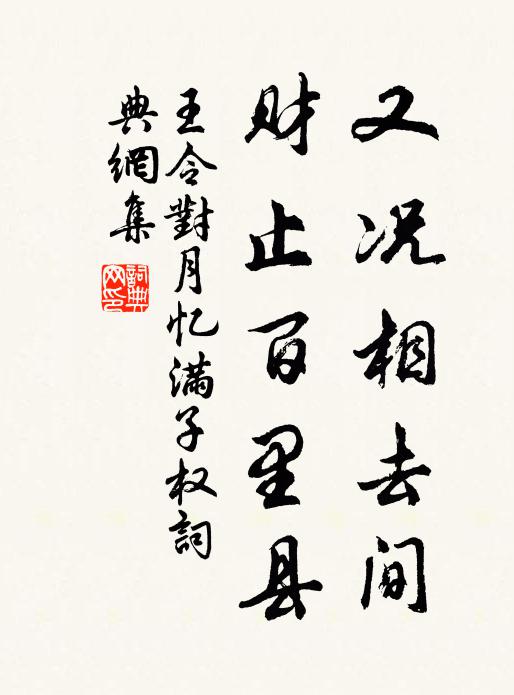 又况相去间
财止百里县
王令對月忆满子权詞
典網集
詞典网印